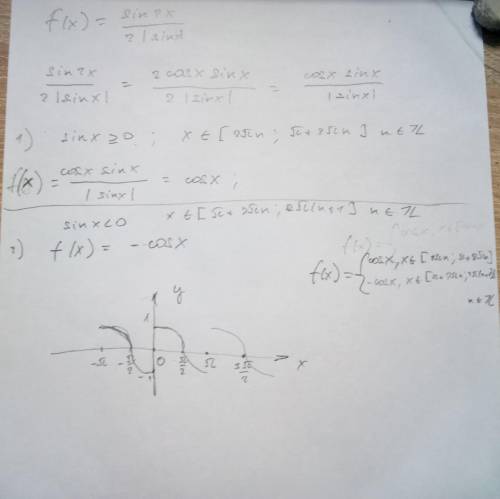 f(x) = sin 2x / 2|sinx|
sin 2x / 2|sinx| = 2 cosx sinx / 2|sinx| = cosx sinx / |sinx|
1) sinx ≥ 0 ; x ∈ [2πn ; π+2πn] n ∈ Z
f(x) = cosx sinx / |sinx| = cosx ;
sinx < 0 x ∈ [π+2πn ; 2π(n+1)] n ∈ Z
2) f(x) = -cosx
f(x) =
f(x) = { cosx, x ∈ [2πn ; π+2πn]
-cosx, x ∈ [π+2πn ;
n ∈ Z
y
1
-π -π/2 0 π/2 π 3π/2 x
-1